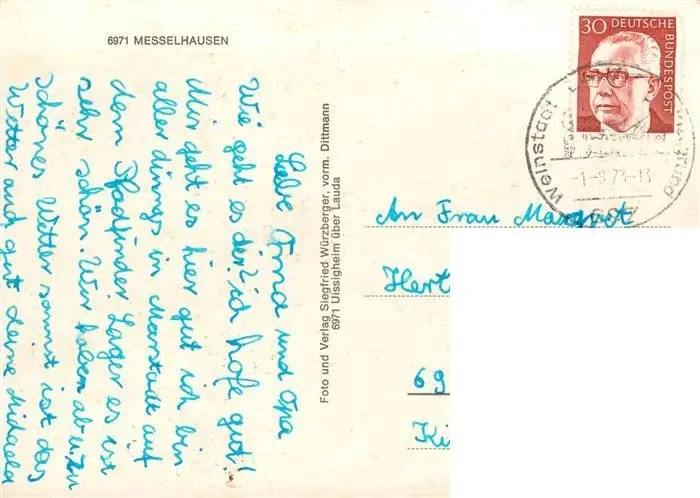 6971 MESSELHAUSEN
Liebe Oma und Opa
Wie geht es dir? ich hofe gut!
Mir geht es hier gut ich bin
aller dinngs in Marstadt auf
dem Pfadfinder Lager es ist
sehr schön. Wir haben ab u. zu
schönes Wetter sonnst ist das
Wetter auch gut deine Michaela
Foto und Verlag Siegfried Würzberger, vorm. Dittmann
6971 Uissigheim über Lauda
30 DEUTSCHE BUNDESPOST
Weinstadt
-1.-8.73-13
An Frau Margret
Hert
69
Ki